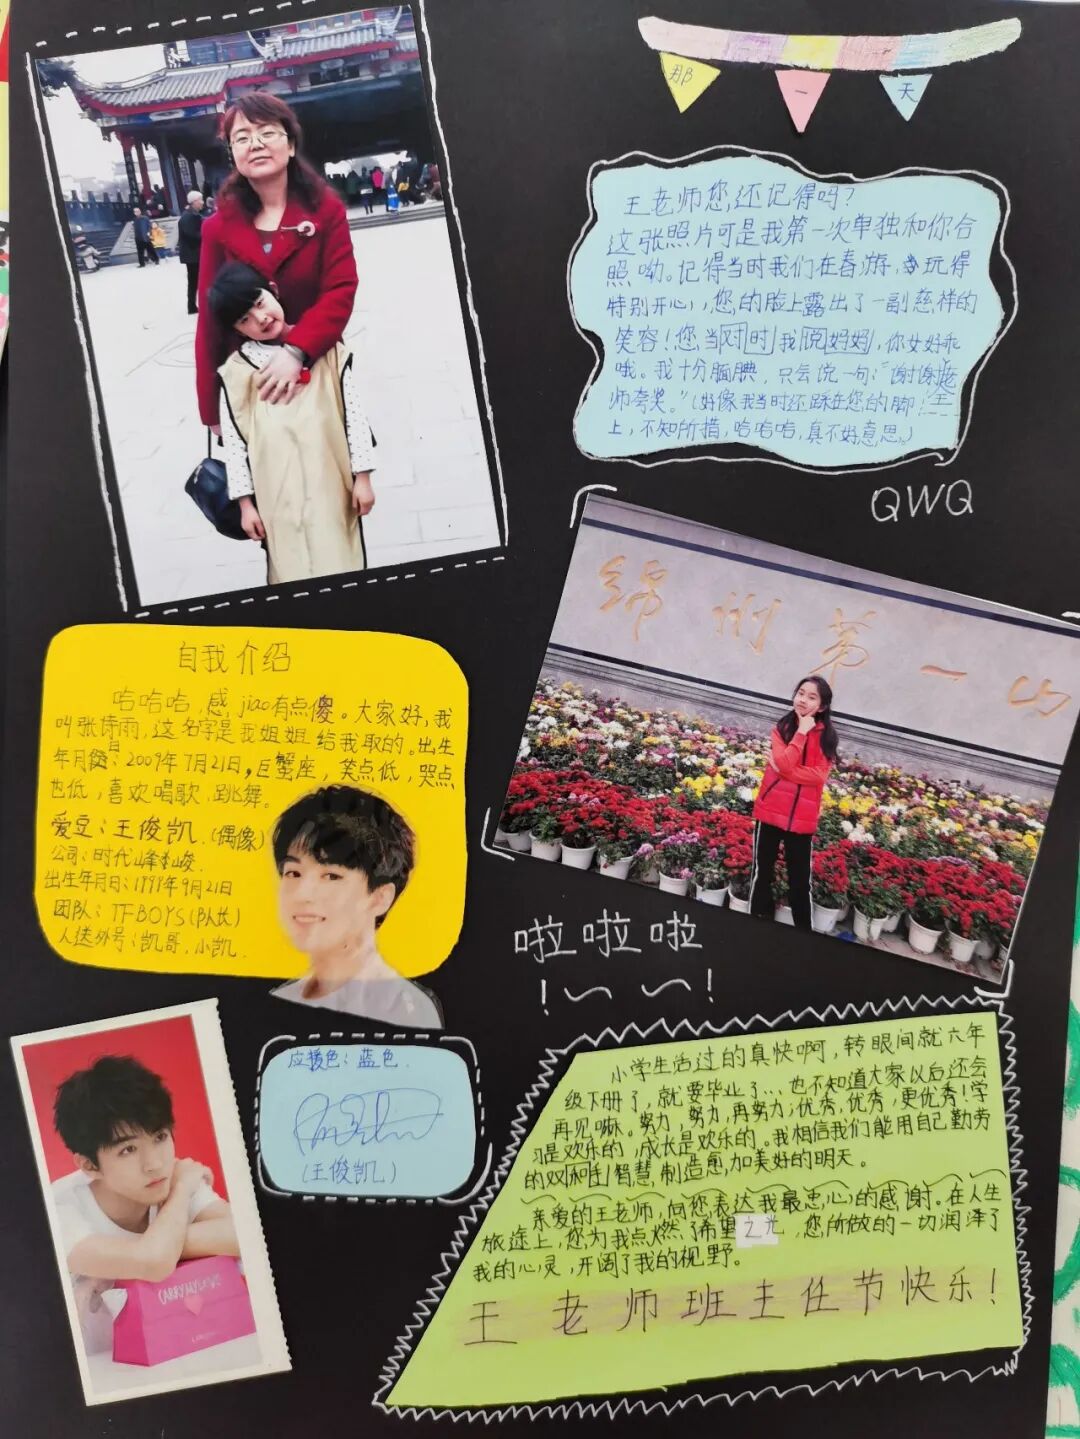 那一天
王老师您还记得吗?
这张照片可是我第一次单独和你合
照呦。记得当时我们在春游,玩得
特别开心,您的脸上露出了一副慈祥的
笑容!您当时对我说妈妈,你女好乖
哦。我十分腼腆,只会说一句:“谢谢老
师夸奖。”(好像我当时还踩在您的脚
上,不知所措,哈哈哈,真不好意思。)
QWQ
绵州第一山
自我介绍
哈哈哈,感jiao有点傻。大家好,我
叫张诗雨,这名字是我姐姐给我取的。出生
年月日:2009年7月21日,巨蟹座,笑点低,哭点
也低,喜欢唱歌,跳舞。
爱豆:王俊凯.(偶像)
公司:时代峰峻.
出生年月日:1999年9月21日
团队:TFBOYS(队长)
人送外号:凯哥、小凯.
啦啦啦
!~~!
应援色:蓝色.
(王俊凯)
CARRY MY LOVE
小学生活过的真快啊,转眼间就六年
级下册了,就要毕业了…也不知道大家以后还会
再见嘛。努力,努力,再努力;优秀,优秀,更优秀!学
习是欢乐的,成长是欢乐的。我相信我们能用自己勤劳
的双和智慧,制造愈加美好的明天。
亲爱的王老师,向您表达我最忠心的感谢。在人生
旅途上,您为我点燃了希望之光,您所做的一切润泽了
我的心灵,开阔了我的视野。
王老师班主任节快乐!